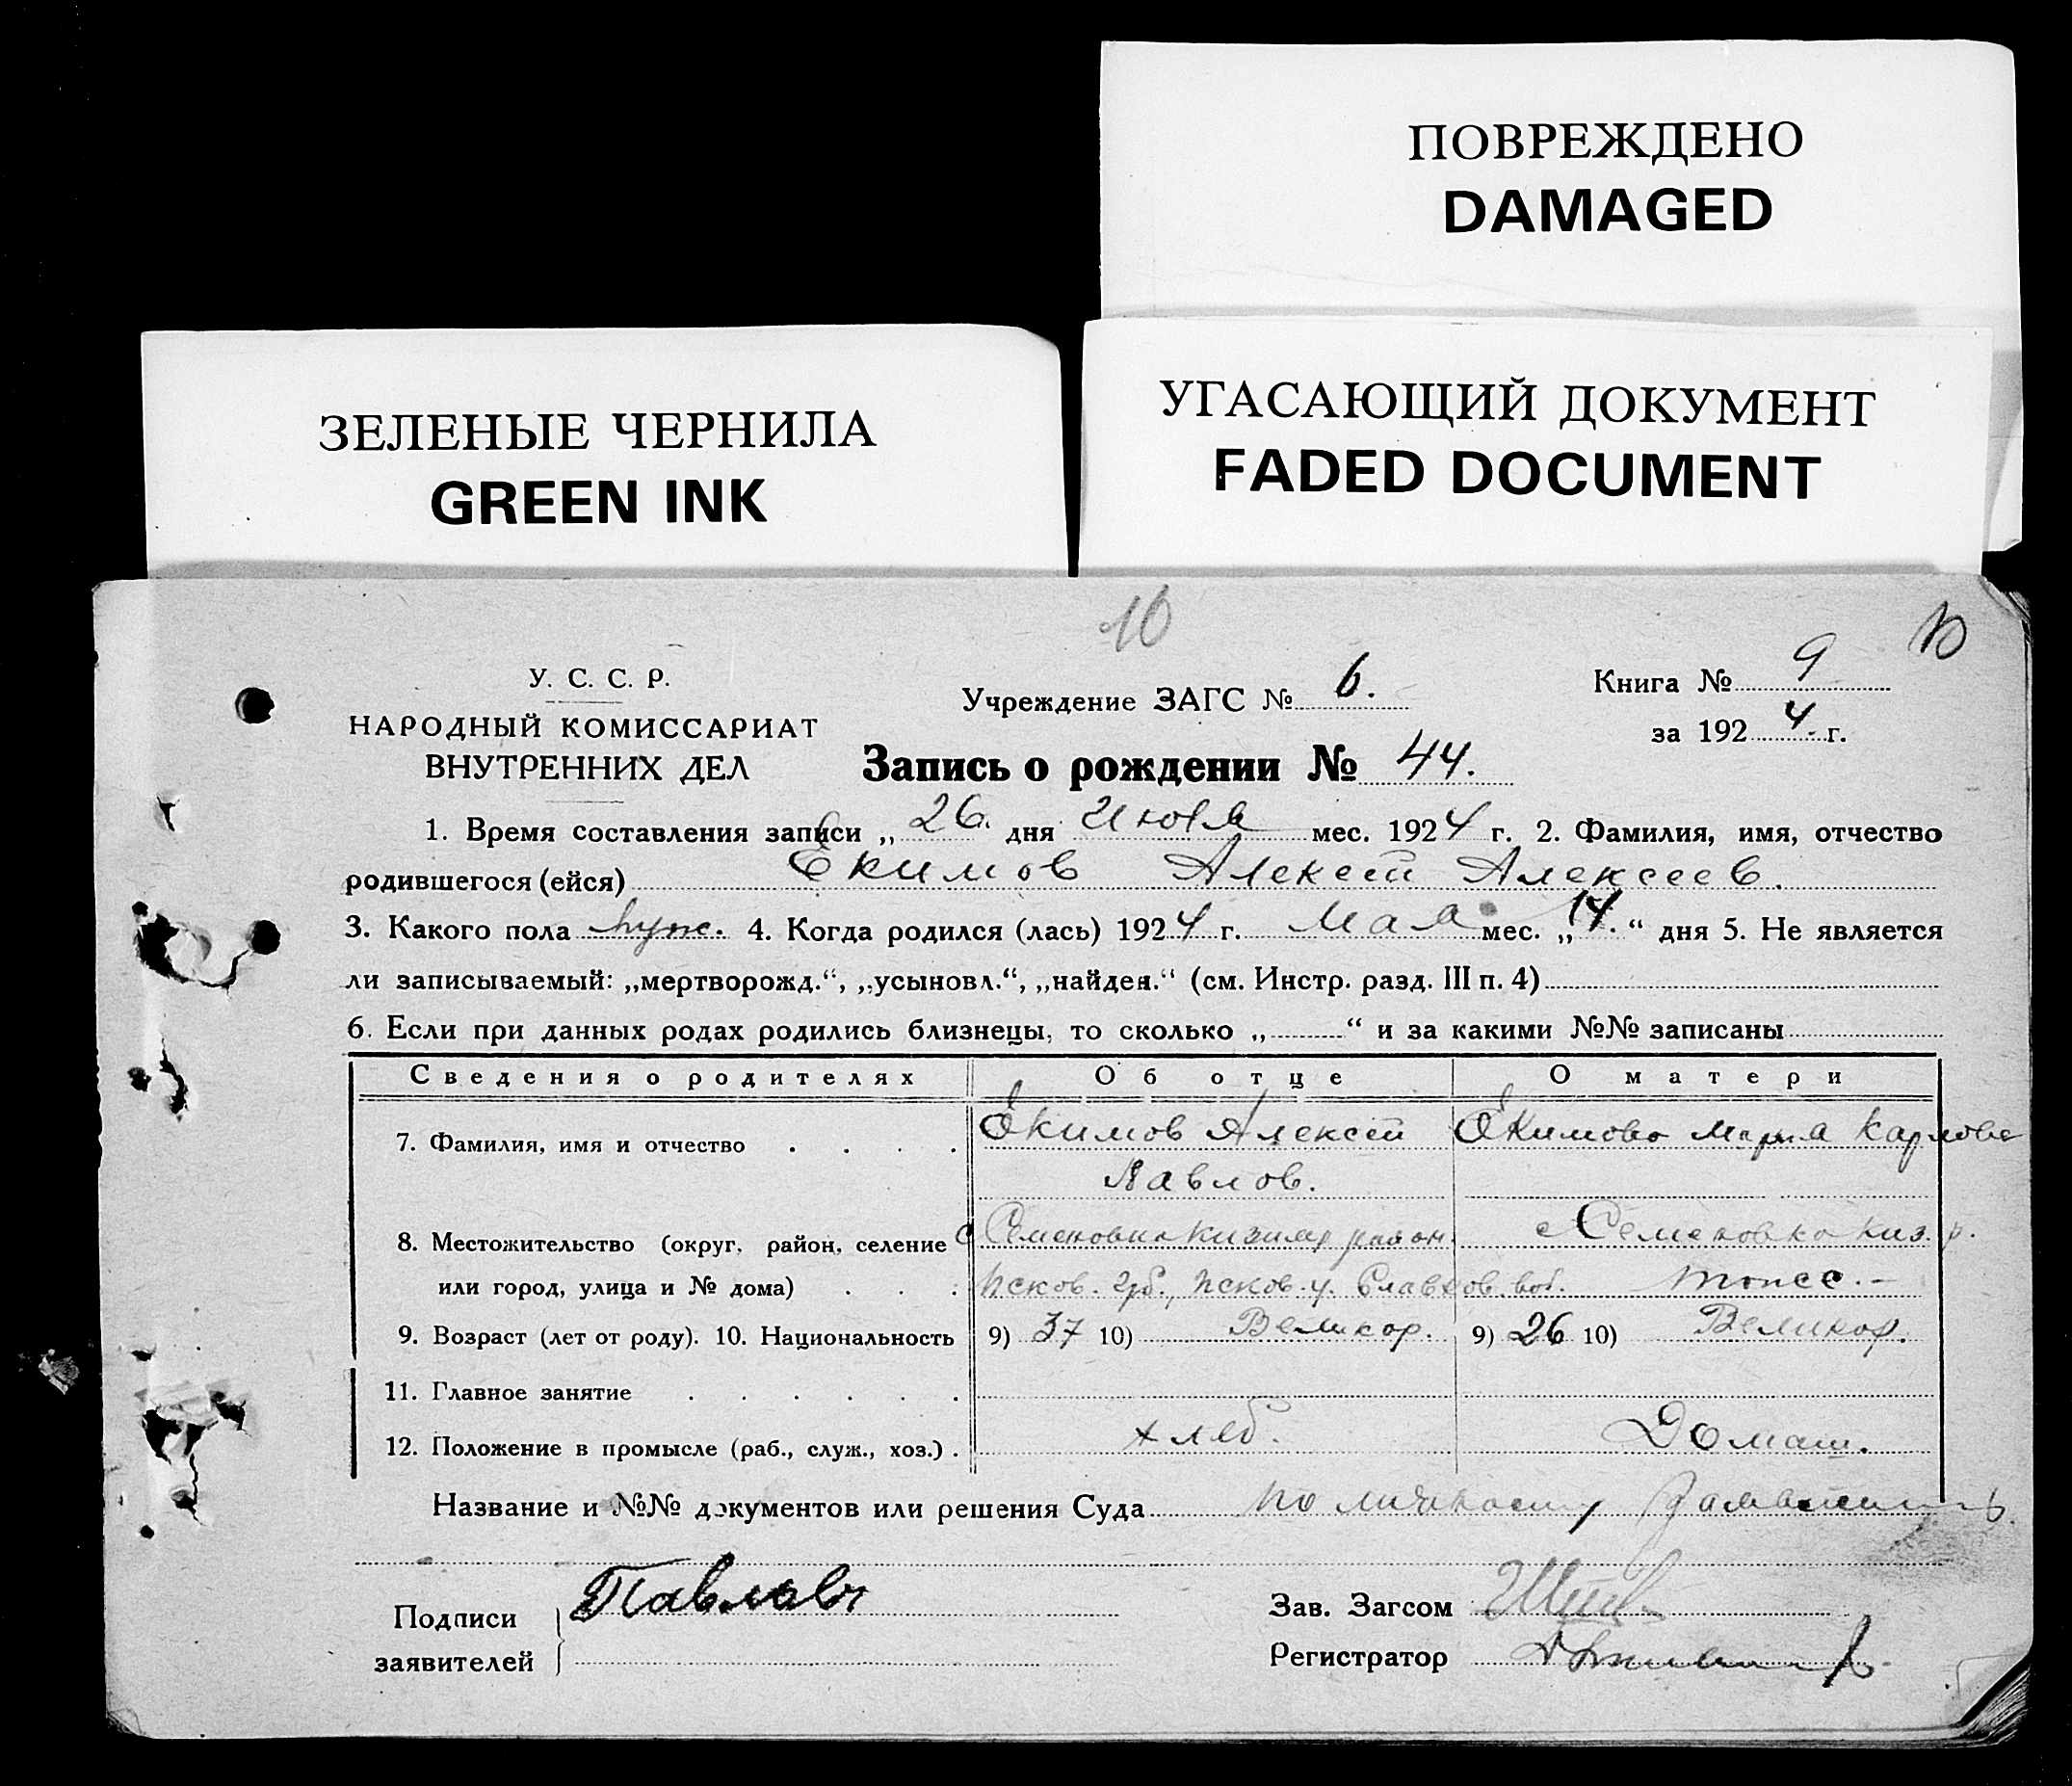 ПОВРЕЖДЕНО
DAMAGED
ЗЕЛЕНЫЕ ЧЕРНИЛА
GREEN INK
УГАСАЮЩИЙ ДОКУМЕНТ
FADED DOCUMENT
10
У. С. С. Р.
НАРОДНЫЙ КОМИССАРИАТ
ВНУТРЕННИХ ДЕЛ
Учреждение ЗАГС № 6.
Книга № 9
за 1924 г.
Запись о рождении № 44.
1. Время составления записи „ 26. дня Июля мес. 1924 г. 2. Фамилия, имя, отчество
родившегося (ейся) Екимов Алексей Алексеев.
3. Какого пола муж. 4. Когда родился (лась) 1924 г. Мая мес. „14.“ дня 5. Не является
ли записываемый: „мертворожд.“, „усыновл.“, „найден.“ (см. Инстр. разд. III п. 4)
6. Если при данных родах родились близнецы, то сколько „ “ и за какими №№ записаны
Сведения о родителях Об отце О матери
7. Фамилия, имя и отчество Екимов Алексей Екимова Мария Карлова
Павлов.
8. Местожительство (округ, район, селение с Семеновка район. с Семеновка киз. р.
или город, улица и № дома) Псков. губ., Псков. у. Славков. вол. тоже.-
9. Возраст (лет от роду). 10. Национальность 9) 37 10) Великор. 9) 26 10) Великор.
11. Главное занятие
12. Положение в промысле (раб., служ., хоз.) хлеб. Домаш.
Название и №№ документов или решения Суда по личному
Подписи
заявителей
Зав. Загсом
Регистратор